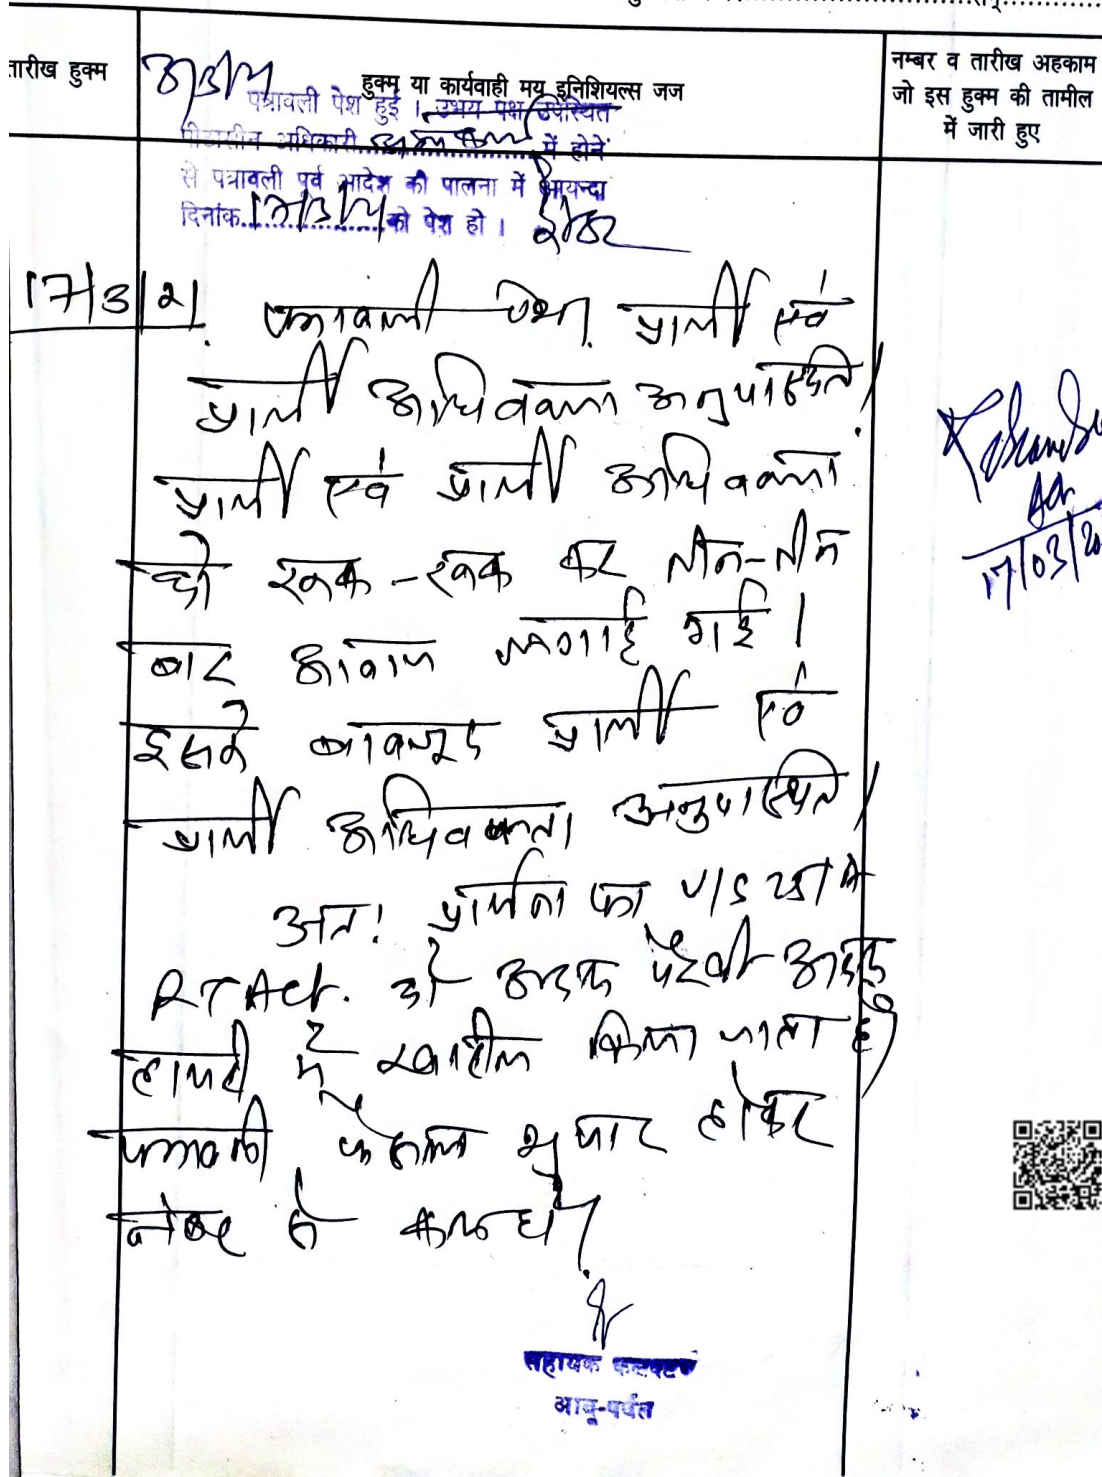 तारीख हुक्म
हुक्म या कार्यवाही मय इनिशियल्स जज
नम्बर व तारीख अहकाम
जो इस हुक्म की तामील
में जारी हुए
पत्रावली पेश हुई । उभय पक्ष उपस्थित
पीठासीन अधिकारी में होने
से पत्रावली पूर्व आदेश की पालना में आयन्दा
दिनांक को पेश हो ।
17/3/21 पत्रावली पेश। प्रार्थी एवं
प्रार्थी अधिवक्ता अनुपस्थित।
प्रार्थी एवं प्रार्थी अधिवक्ता
को रूक-रूक कर तीन-तीन
बार आवाज लगाई गई।
इसके बावजूद प्रार्थी एवं
प्रार्थी अधिवक्ता अनुपस्थित।
अतः प्रार्थना पत्र U/S 251 A
RT Act. को अदम पैरवी अदम
हाजरी में खारीज किया जाता है।
पत्रावली फैसल शुमार होकर
नंबर से कम हो।
17/03/20
सहायक कलक्टर
आबू-पर्वत